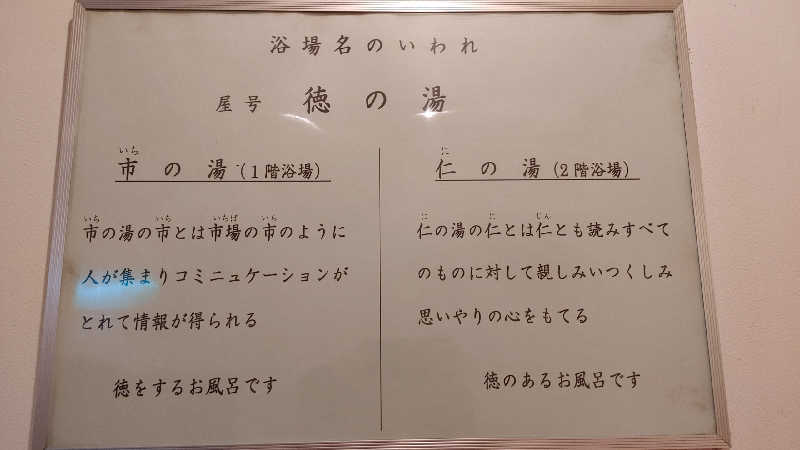 浴場名のいわれ
屋号 徳の湯
いち
市の湯（1階浴場）
いち いち いちば いち
市の湯の市とは市場の市のように
人が集まりコミニュケーションが
とれて情報が得られる
徳をするお風呂です
に
仁の湯（2階浴場）
に に じん
仁の湯の仁とは仁とも読みすべて
のものに対して親しみいつくしみ
思いやりの心をもてる
徳のあるお風呂です